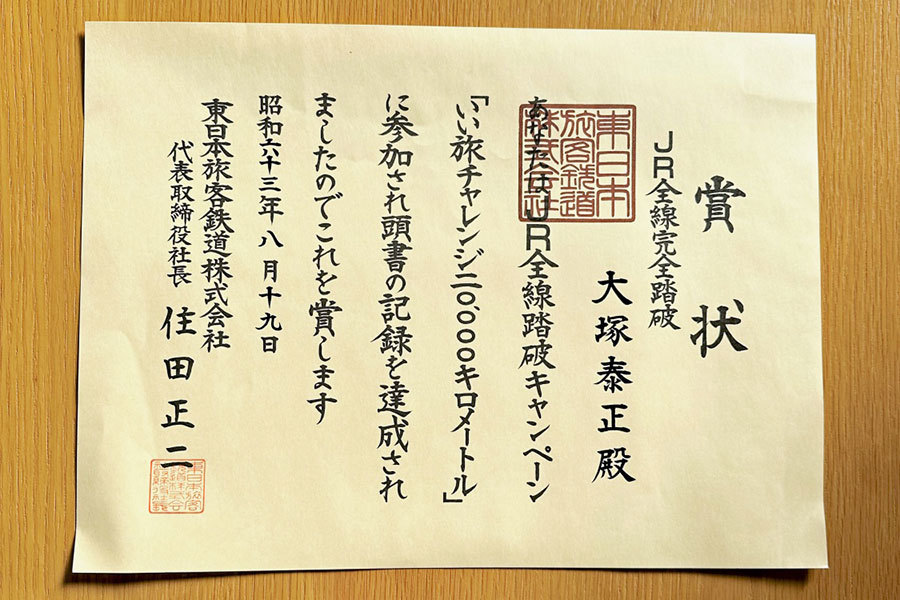 賞状
JR全線完全踏破
大塚泰正殿
あなたはJR全線踏破キャンペーン
「いい旅チャレンジ二〇、〇〇〇キロメートル」
に参加され頭書の記録を達成され
ましたのでこれを賞します
昭和六十三年八月十九日
東日本旅客鉄道株式会社
代表取締役社長 住田正二
東日本
旅客鉄道
株式会社